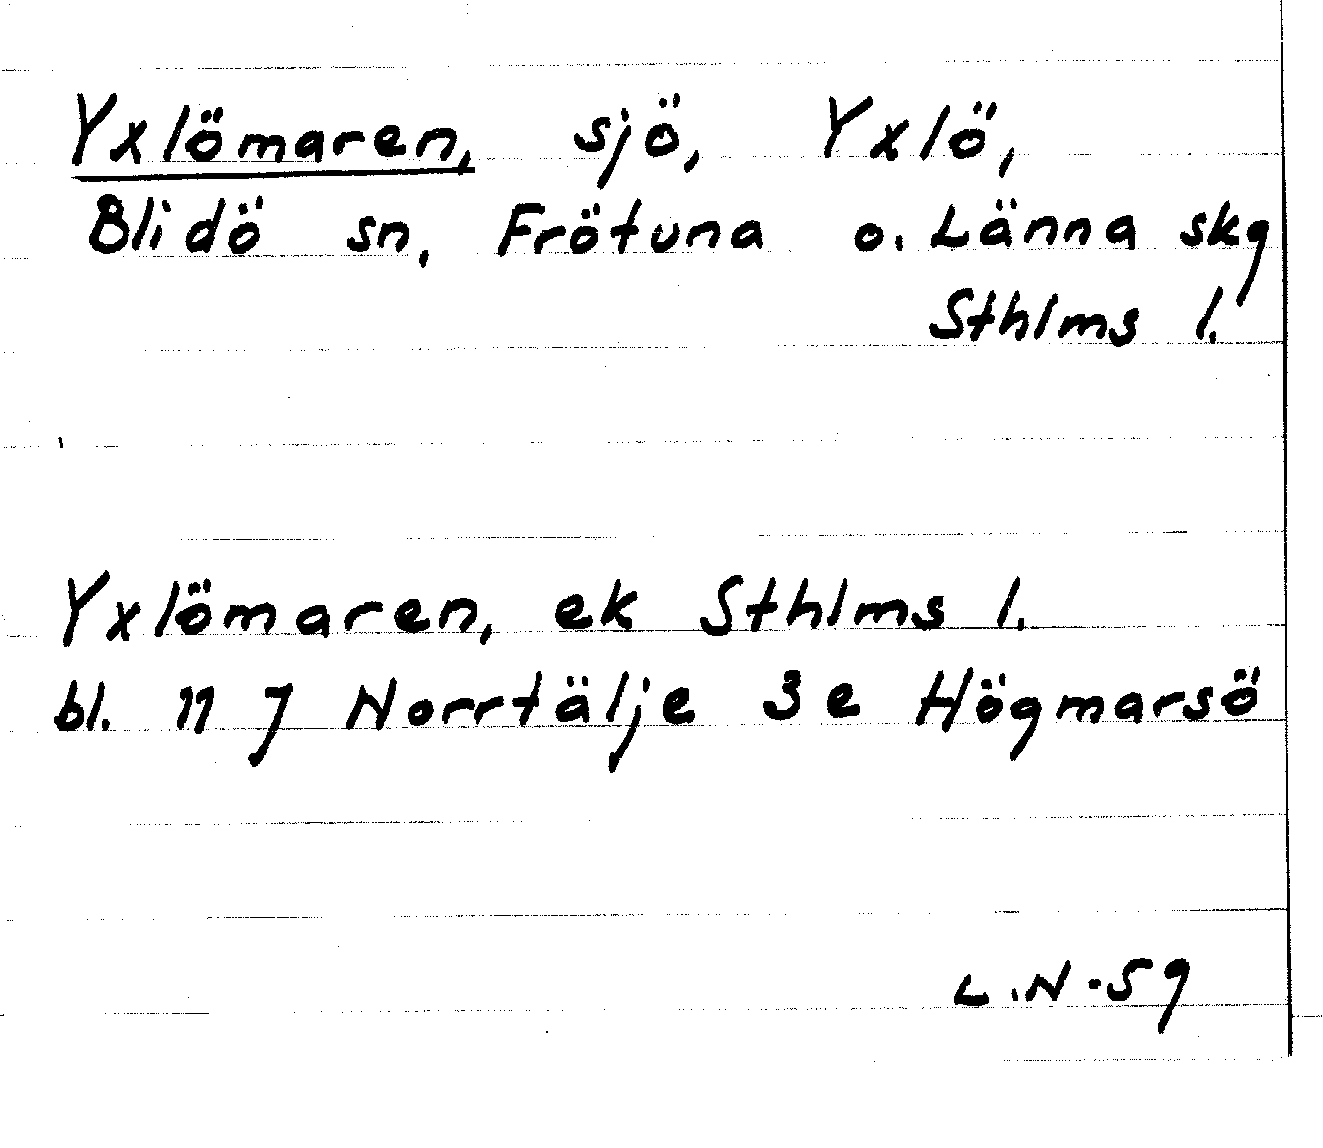 Yxlömaren, sjö, Yxlö,
Blidö sn, Frötuna o. Länna skg
Sthlms l.
Yxlömaren, ek Sthlms l.
bl. 11 J Norrtälje 3e Högmarsö
L.N-59